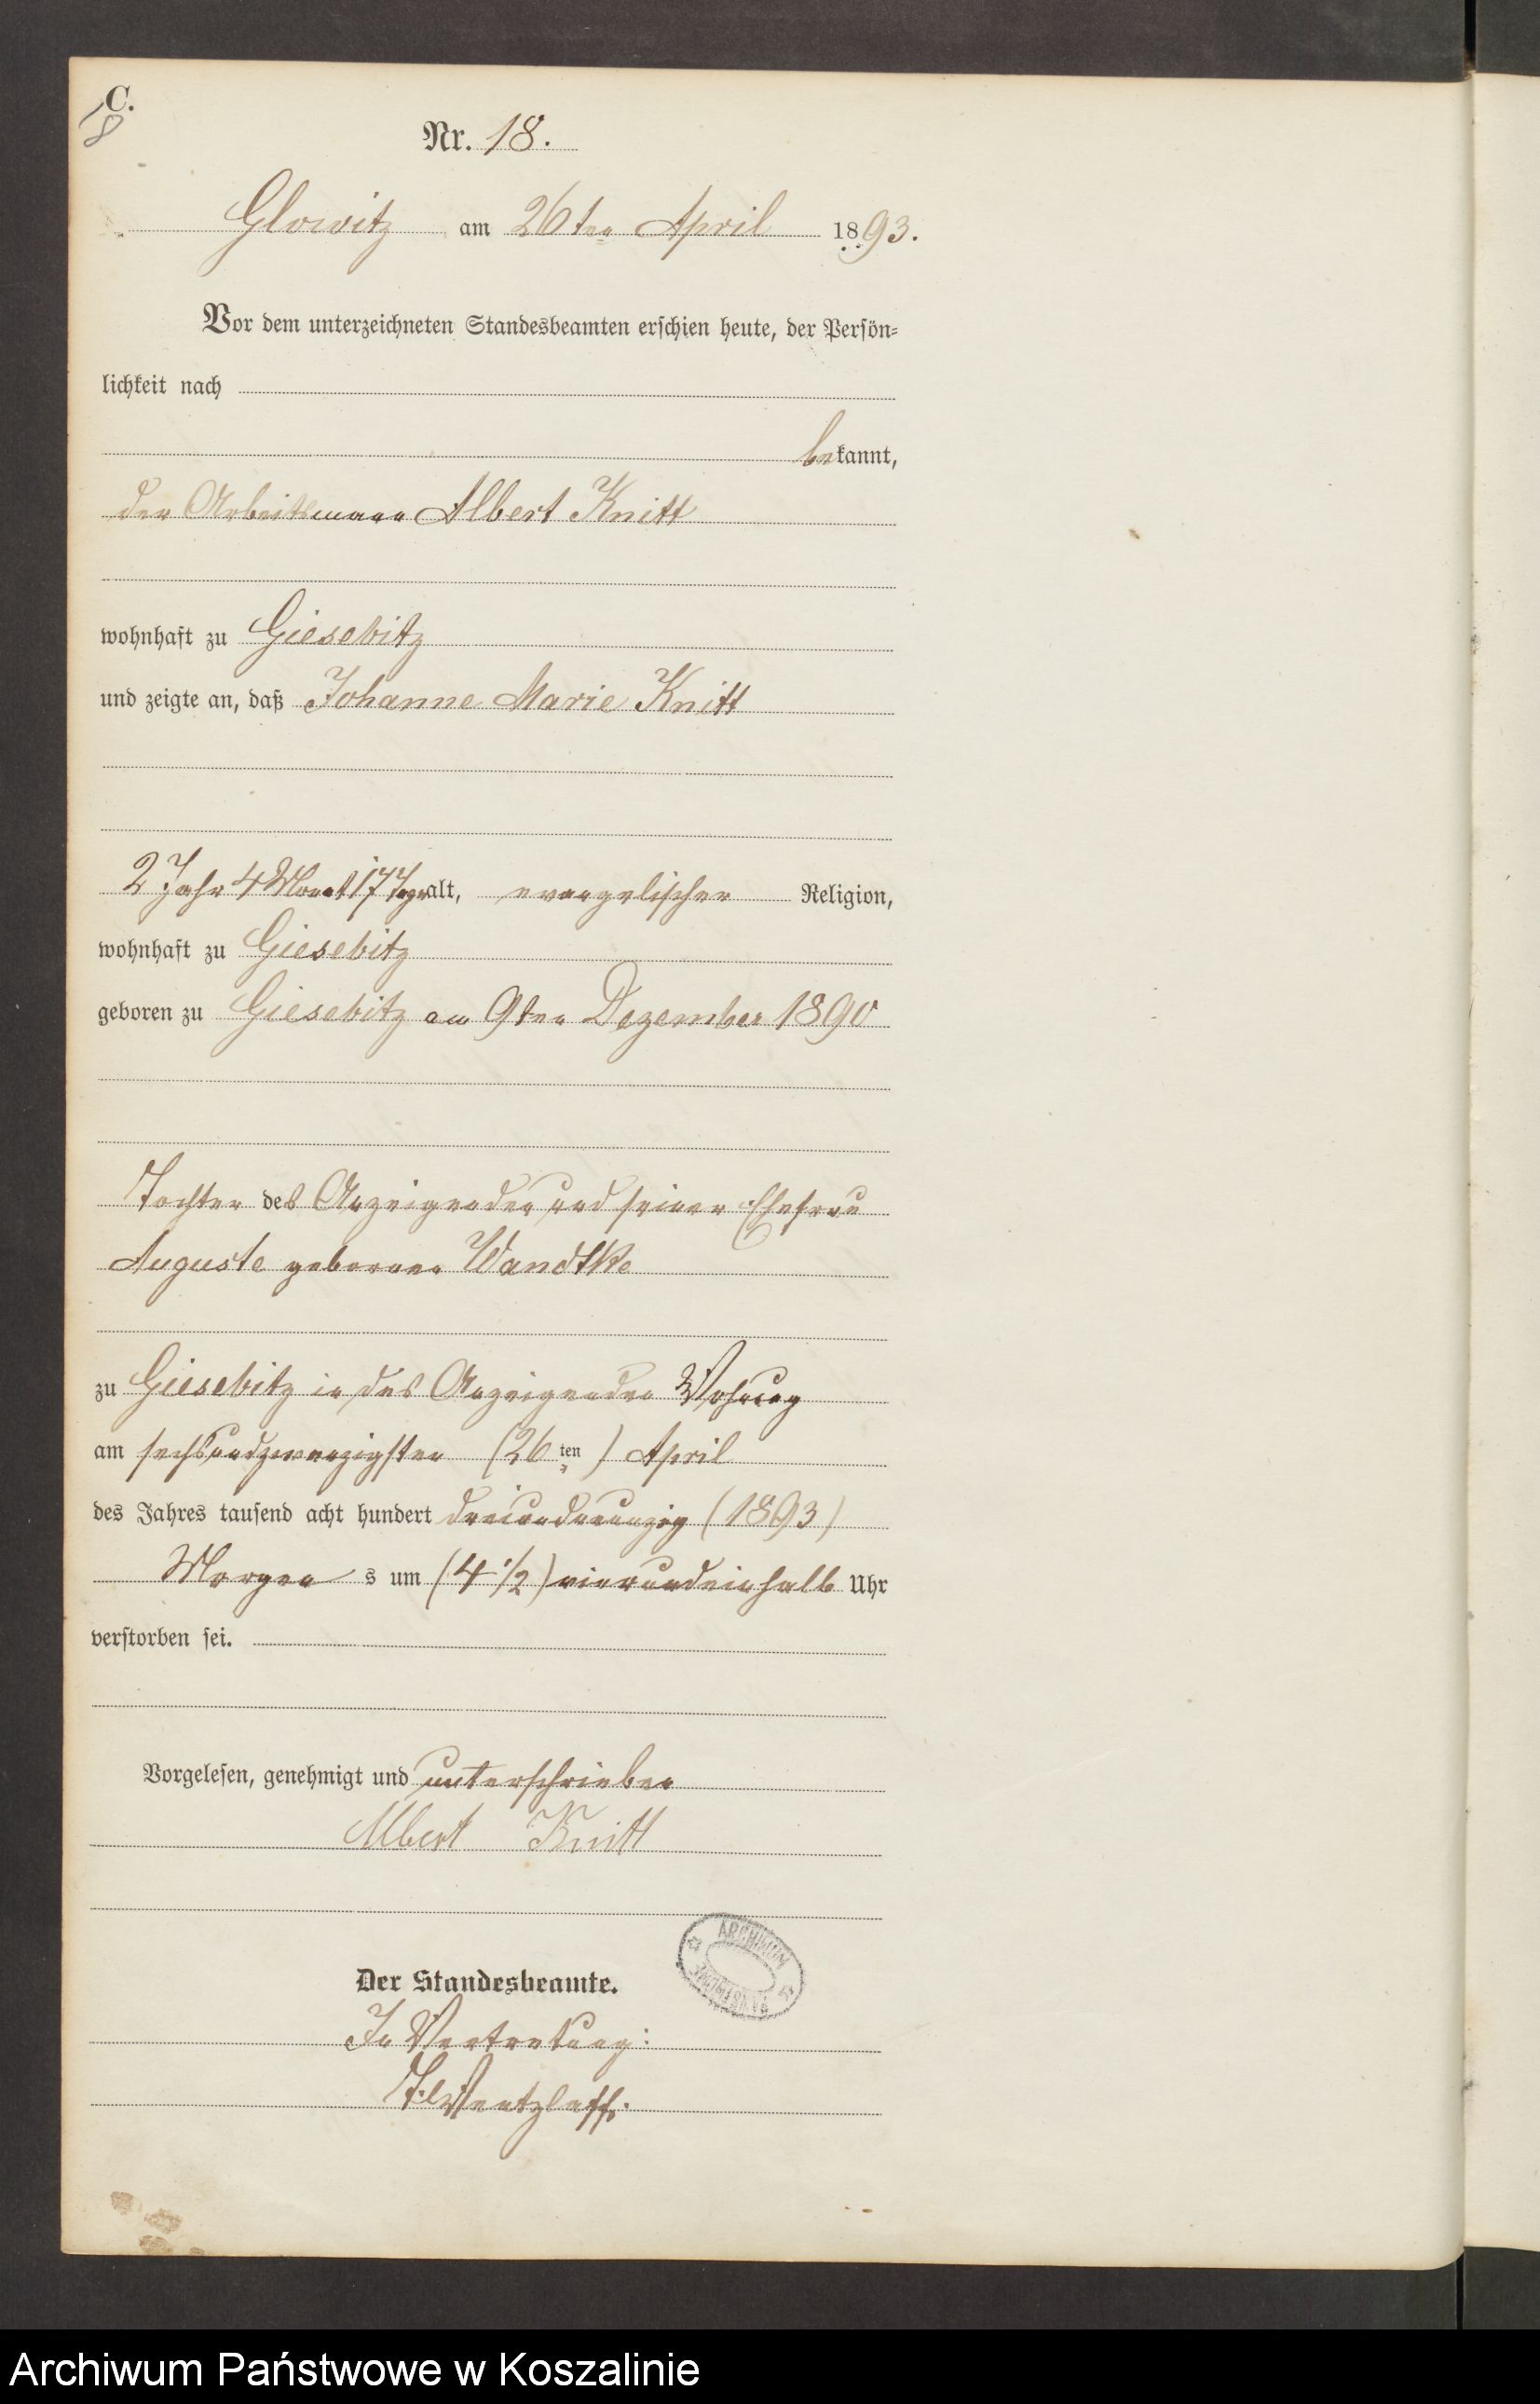 C.
8
Nr. 18.
Glowitz am 26ten April 1893.
Vor dem unterzeichneten Standesbeamten erschien heute, der Persön-
lichkeit nach
bekannt,
der Arbeitsmann Albert Knitt
wohnhaft zu Giesebitz
und zeigte an, daß Johanne Marie Knitt
2 Jahr 4 Monat 17 Tage alt, evangelischer Religion,
wohnhaft zu Giesebitz
geboren zu Giesebitz am 9ten Dezember 1890
Tochter des Anzeigenden und seiner Ehefrau
Auguste geborenen Wandtke
zu Giesebitz in des Anzeigenden Wohnung
am sechsundzwanzigsten (26ten) April
des Jahres tausend acht hundert dreiundneunzig (1893)
Morgens um (4 1/2) vierundeinhalb Uhr
verstorben sei.
Vorgelesen, genehmigt und unterschrieben
Albert Knitt
ARCHIWUM
Der Standesbeamte.
In Vertretung:
Wentzlaff.
Archiwum Państwowe w Koszalinie